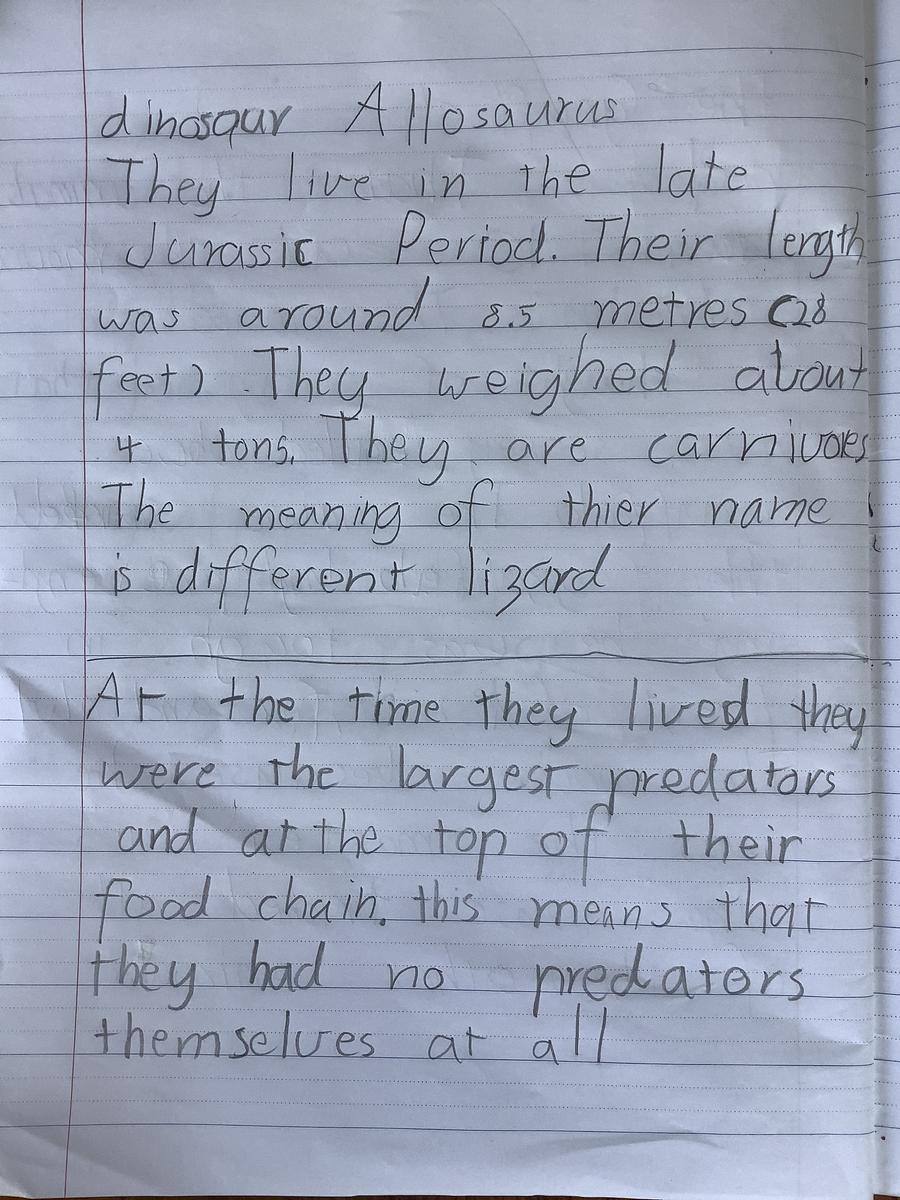 dinosaur Allosaurus
They live in the late
Jurassic Period. Their length
was around 8.5 metres (28
feet). They weighed about
4 tons. They are carnivores
The meaning of thier name
is different lizard
At the time they lived they
were the largest predators
and at the top of their
food chain. this means that
they had no predators
themselves at all